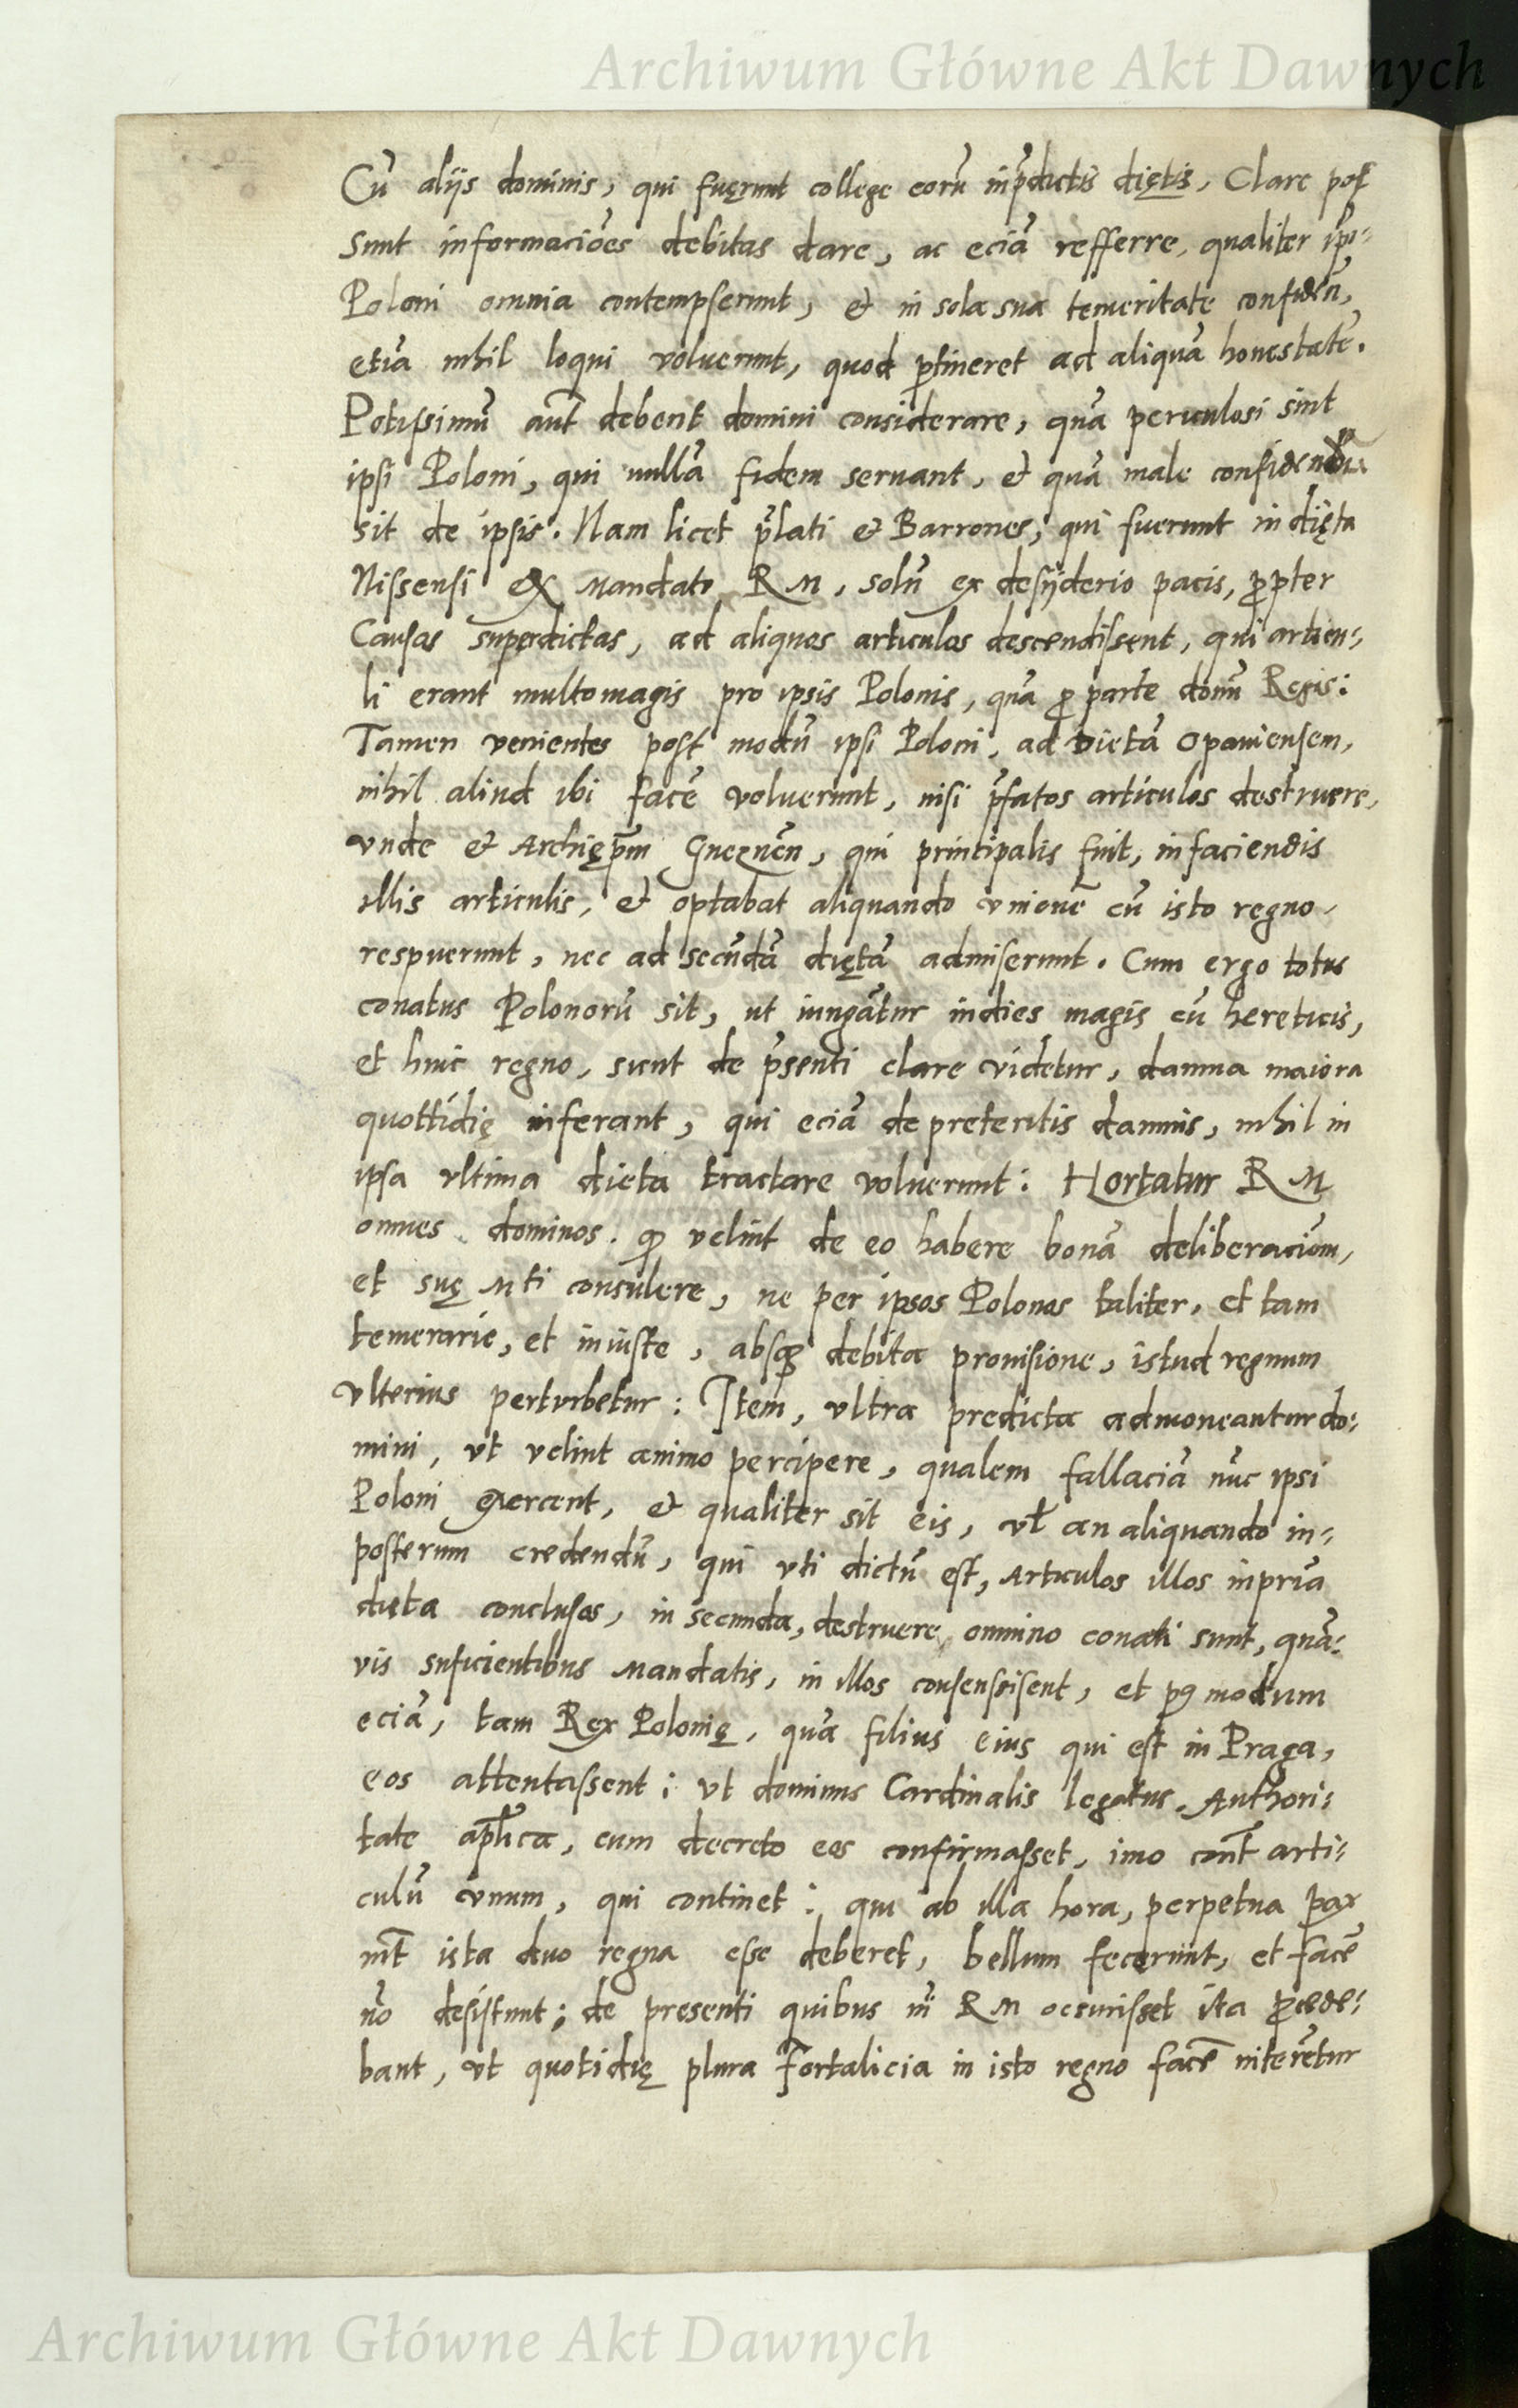 Archiwum Główne Akt Dawnych
Cũ alijs dominis, qui fuęrunt college eorũ in p̃dictis diętis, Clare pos
sunt informaciões debitas dare, ac eciã refferre, qualiter ip̃i
Poloni omnia contempserunt, et in sola sua temeritate confideñ,
etiã nihil loqui voluerunt, quod ptineret ad aliquã honestatẽ.
Potissimũ aũt debent domini considerare, quã periculosi sint
ipsi Poloni, qui nullã fidem seruant, et quã male confidendũ
sit de ipsis. Nam licet p̃lati et Barrones, qui fuerunt in dięta
Nissensi ex Mandato R M, solũ ex desyderio pacis, propter
Causas superdictas, ad aliquos articulos descendissent, qui articu-
li erant multomagis pro ipsis Polonis, quã pro parte domĩ Regis:
Tamen venientes post modũ ipsi Poloni, ad Dietã Opauiensem,
nihil aliud ibi facẽ voluerunt, nisi p̃fatos articulos destruere,
vnde et Archięp̃m Gneznẽn, qui principalis fuit, in faciendis
illis articulis, et optabat aliquando vnionẽ cũ isto regno,
respuerunt, nec ad secũdã diętã admiserunt. Cum ergo totus
conatus Polonorũ sit, ut iungãtur indies magis cũ hereticis,
et huic regno, sicut de p̃senti clare videtur, damna maiora
quottidię inferant, qui eciã de preteritis damnis, nihil in
ipsa vltima dieta tractare voluerunt: Hortatur R M
omnes dominos. qͻ velint de eo habere bonã deliberaciõm,
et suę Mti consulere, ne per ipsos Polonos taliter, et tam
temerarie, et iniuste, absqꝫ debita prouisione, istud regnum
vlterius perturbetur: Item, vltra predicta admoneantur do-
mini, vt velint animo percipere, qualem fallaciã nũc ipsi
Poloni exercent, et qualiter sit eis, vł an aliquando in-
posterum credendũ, qui vti dictũ est, Articulos illos in priã
dięta conclusos, in secunda, destruere omnino conati sunt, quã-
vis suficientibus Mandatis, in illos consensissent, et pꝯ modum
eciã, tam Rex Polonię, quã filius eius qui est in Praga,
eos attentassent: vt dominus Cardinalis legatus Authori-
tate apłica, eum decreto eos confirmasset, imo cont̃ arti-
culũ vnum, qui continet: qui ab illa hora, perpetua pax
int̃ ista duo regna esse deberet, bellum fecerunt, et facẽ
nõ desistunt; de presenti quibus nĩ R M occurrisset ita procede-
bant, vt quotidię plura Fortalicia in isto regno facẽ niterẽtur
Archiwum Główne Akt Dawnych